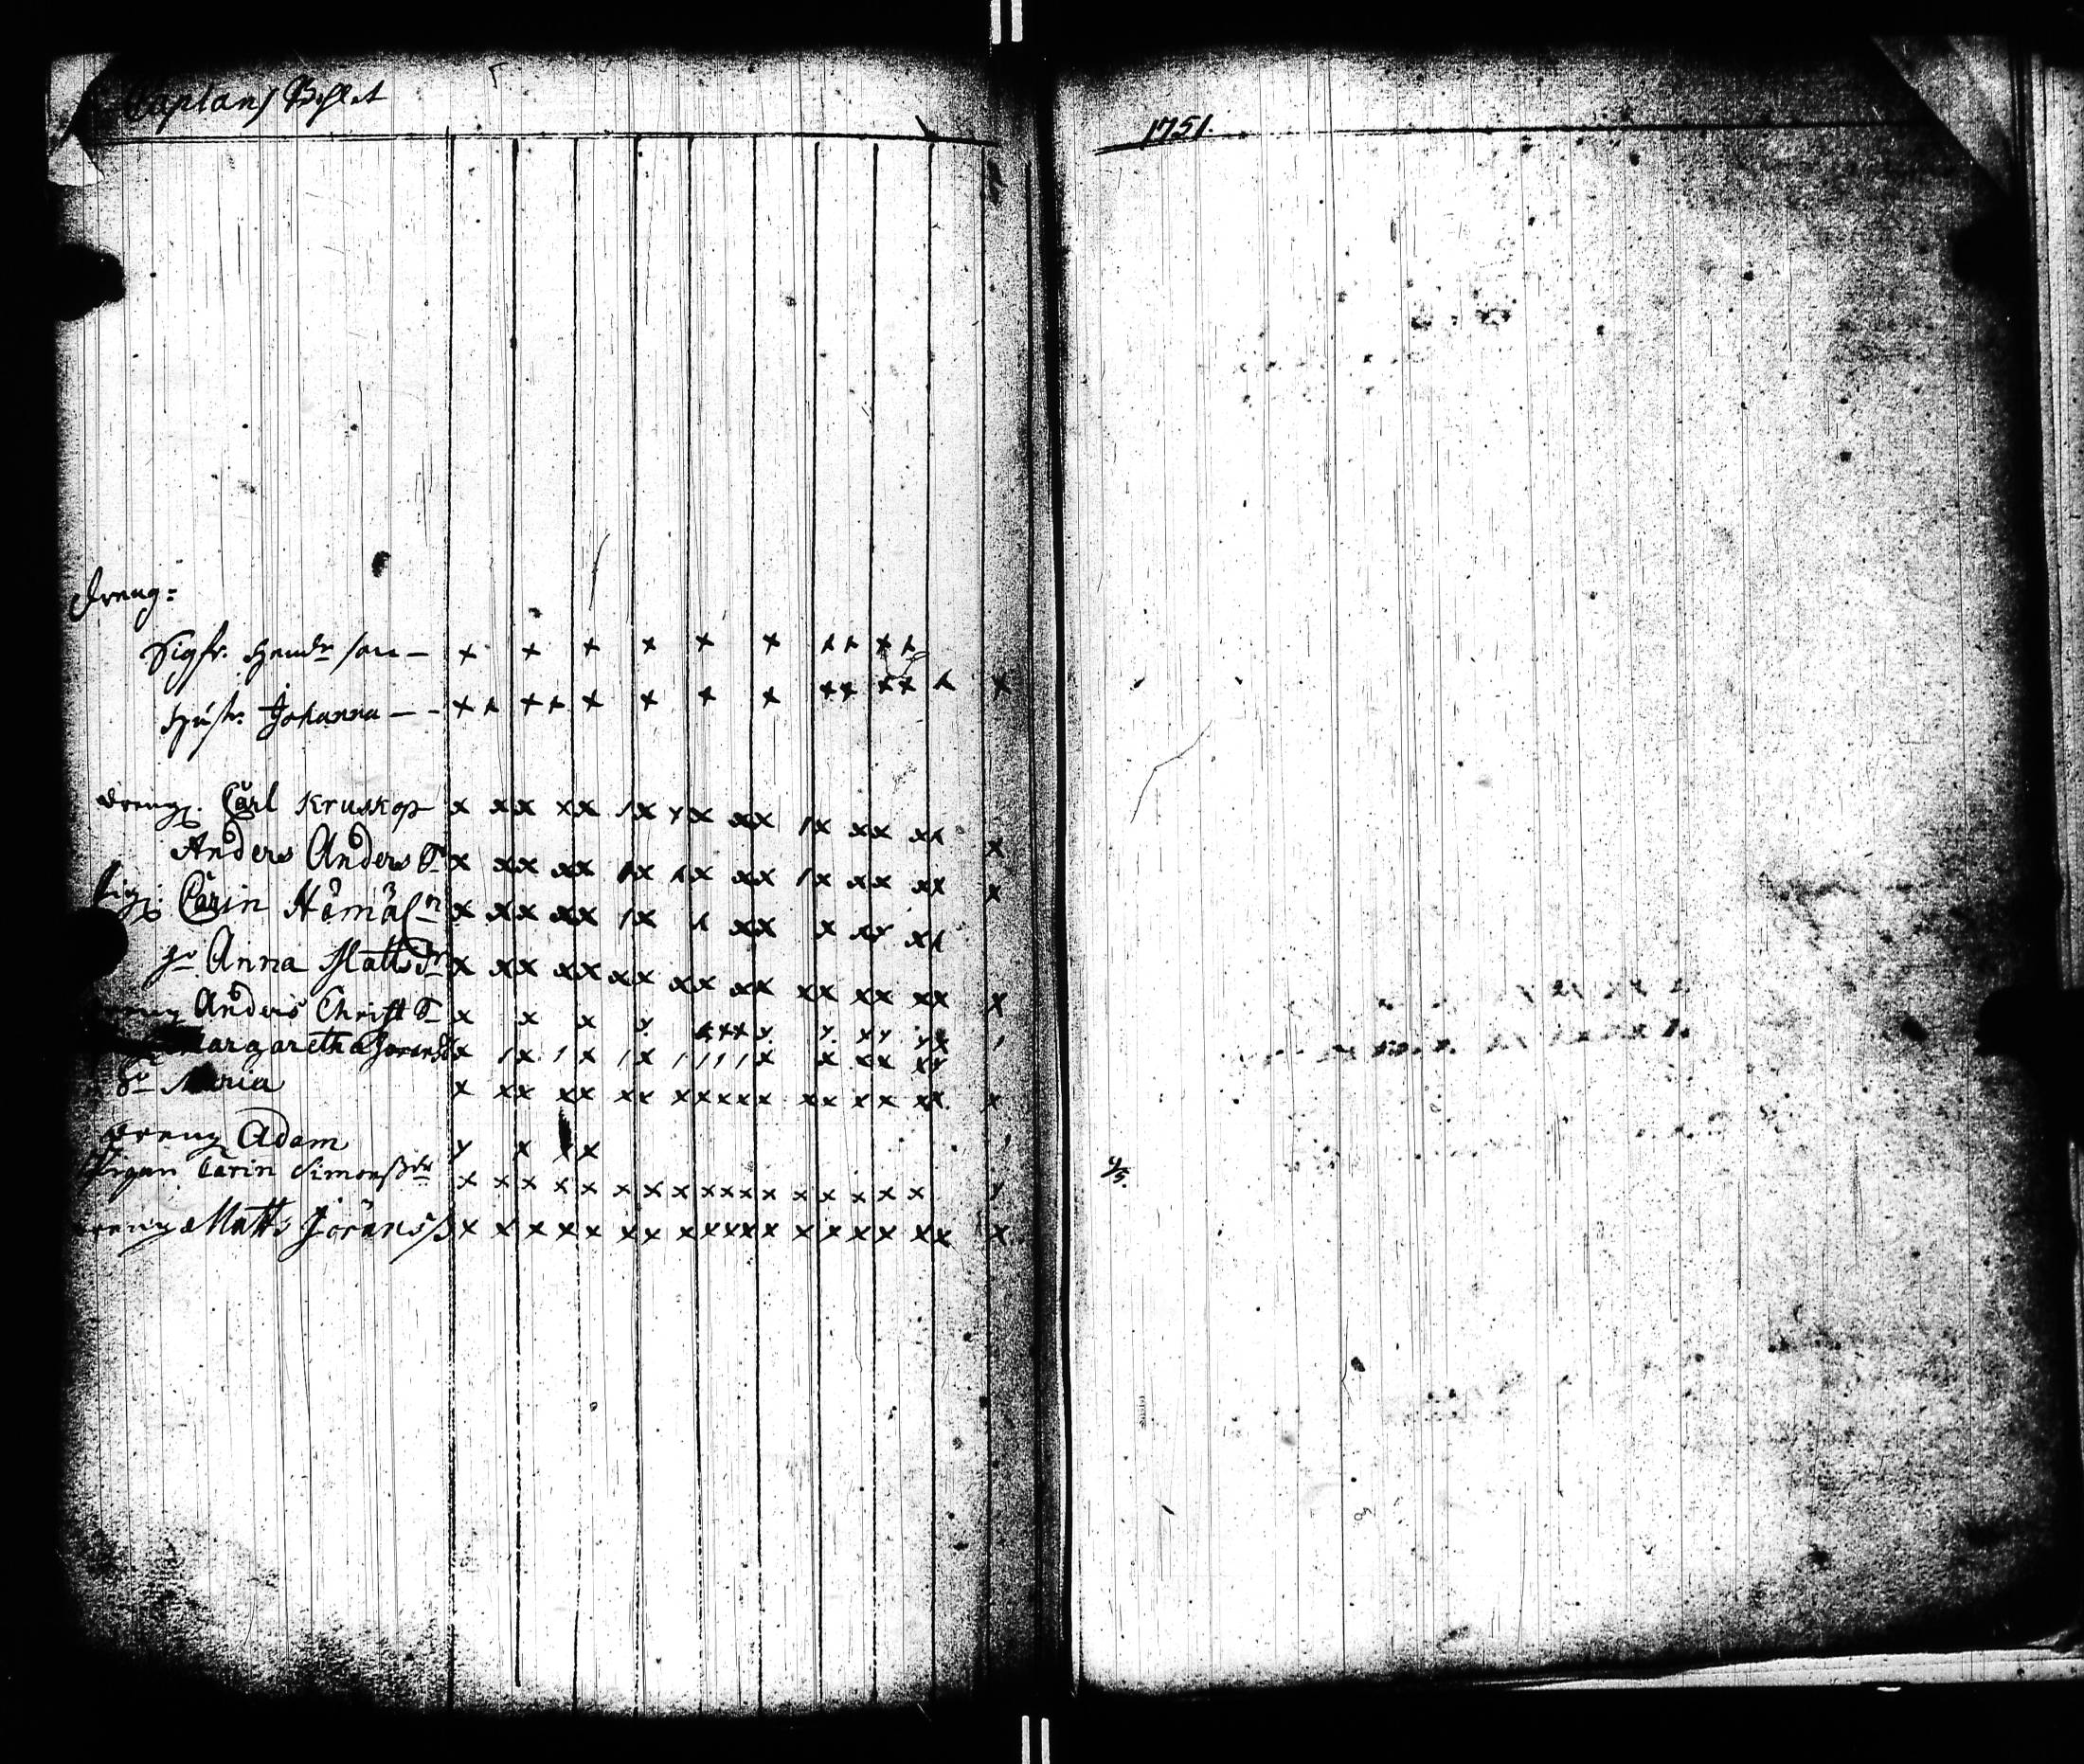 Caplans Bohlet
1751.
Dreng=
Sigfr. Hendr son — x x x x x x x x x x
Hustr. Johanna — - x x x x x x x x x x x x x x
Dreng. Carl Kruskop x xx xx 1x xx xx 1x xx xx x
Anders Anders S x xx xx 1x xx xx 1x xx xx x
Pig. Carin x xx xx 1x x xx x xx xx
Anna Matts Dr x xx xx xx xx xx xx xx xx x
Anders Christ S x x x
Margaretha Jörans x 1x 1x 1x 1111x x xx xx
Dr Maria x xx xx xx xxxxx xx xx xx x
Dreng Adam
Pigan Carin Simonsdr x xx xx xx xxxxx xx xx x
4/5.
Dreng Matts Jörans x xx xx xx xxxxx xx xx xx x